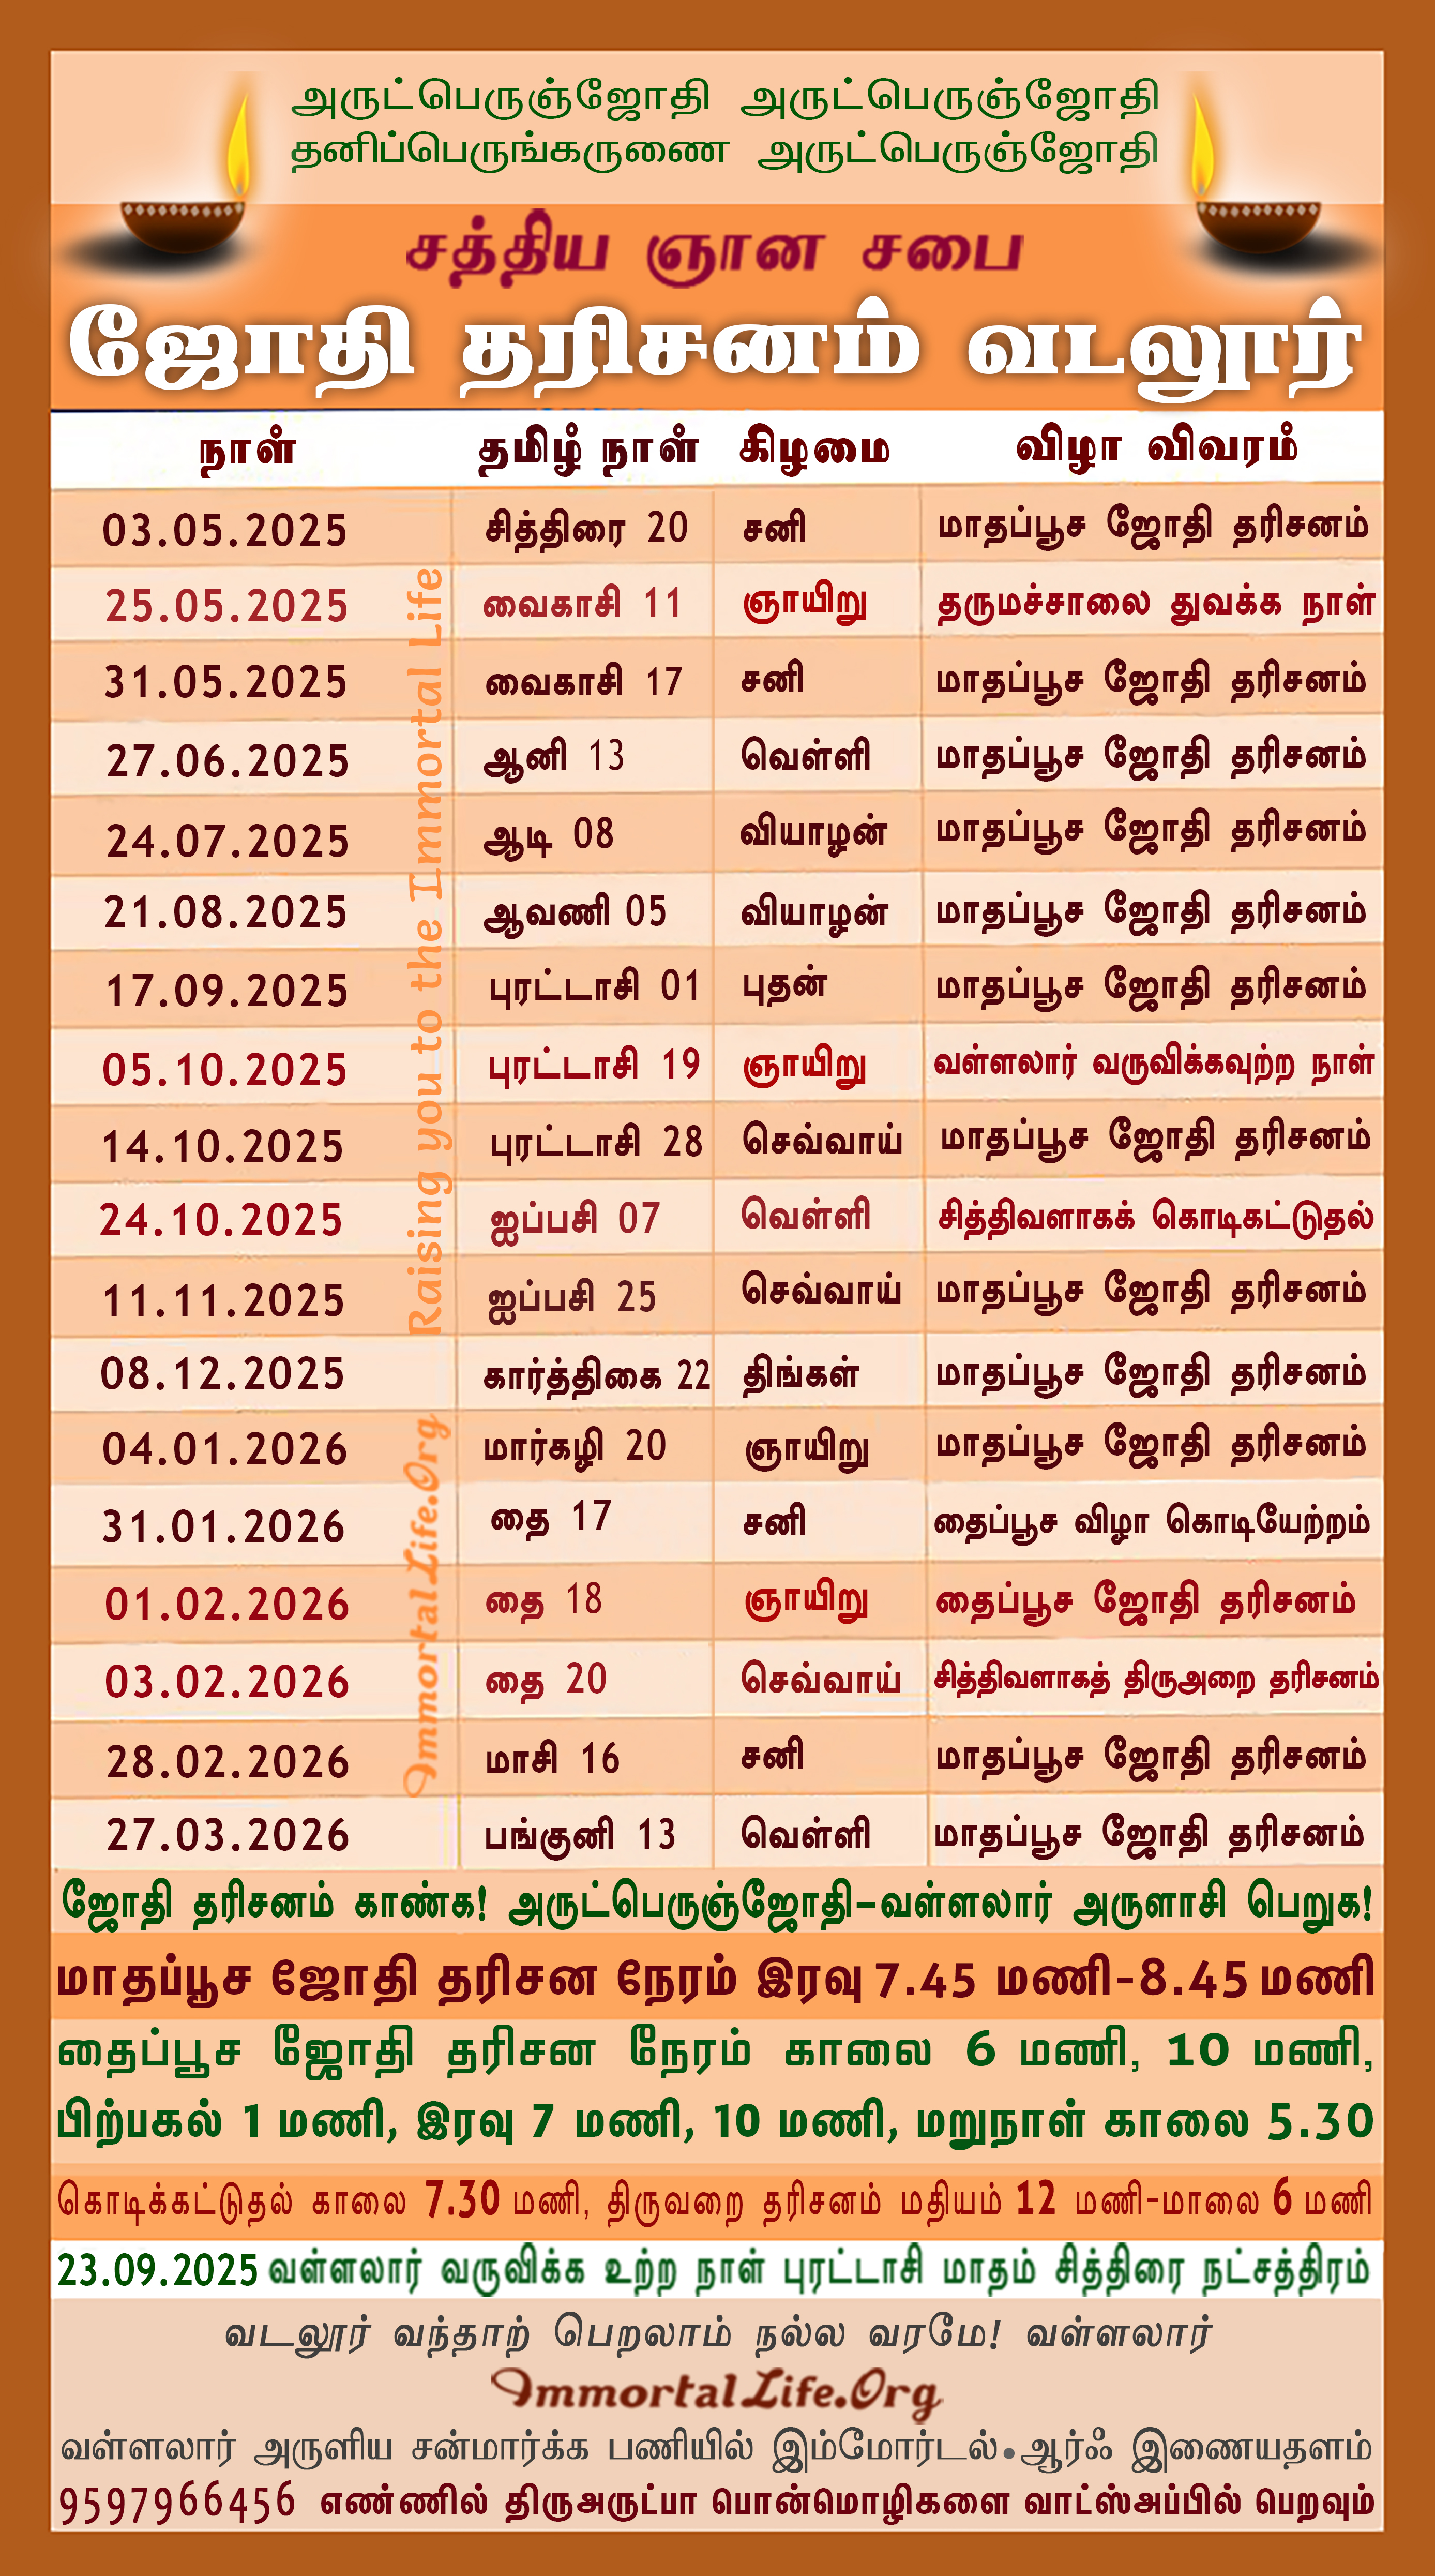 அருட்பெருஞ்ஜோதி அருட்பெருஞ்ஜோதி
தனிப்பெருங்கருணை அருட்பெருஞ்ஜோதி
சத்திய ஞான சபை
ஜோதி தரிசனம் வடலூர்
நாள் தமிழ் நாள் கிழமை விழா விவரம்
03.05.2025 சித்திரை 20 சனி மாதப்பூச ஜோதி தரிசனம்
25.05.2025 வைகாசி 11 ஞாயிறு தருமச்சாலை துவக்க நாள்
31.05.2025 வைகாசி 17 சனி மாதப்பூச ஜோதி தரிசனம்
27.06.2025 ஆனி 13 வெள்ளி மாதப்பூச ஜோதி தரிசனம்
24.07.2025 ஆடி 08 வியாழன் மாதப்பூச ஜோதி தரிசனம்
21.08.2025 ஆவணி 05 வியாழன் மாதப்பூச ஜோதி தரிசனம்
17.09.2025 புரட்டாசி 01 புதன் மாதப்பூச ஜோதி தரிசனம்
05.10.2025 புரட்டாசி 19 ஞாயிறு வள்ளலார் வருவிக்கவுற்ற நாள்
14.10.2025 புரட்டாசி 28 செவ்வாய் மாதப்பூச ஜோதி தரிசனம்
24.10.2025 ஐப்பசி 07 வெள்ளி சித்திவளாகக் கொடிகட்டுதல்
11.11.2025 ஐப்பசி 25 செவ்வாய் மாதப்பூச ஜோதி தரிசனம்
08.12.2025 கார்த்திகை 22 திங்கள் மாதப்பூச ஜோதி தரிசனம்
04.01.2026 மார்கழி 20 ஞாயிறு மாதப்பூச ஜோதி தரிசனம்
31.01.2026 தை 17 சனி தைப்பூச விழா கொடியேற்றம்
01.02.2026 தை 18 ஞாயிறு தைப்பூச ஜோதி தரிசனம்
03.02.2026 தை 20 செவ்வாய் சித்திவளாகத் திருஅறை தரிசனம்
28.02.2026 மாசி 16 சனி மாதப்பூச ஜோதி தரிசனம்
27.03.2026 பங்குனி 13 வெள்ளி மாதப்பூச ஜோதி தரிசனம்
Raising you to the Immortal Life
ImmortalLife.Org
ஜோதி தரிசனம் காண்க! அருட்பெருஞ்ஜோதி-வள்ளலார் அருளாசி பெறுக!
மாதப்பூச ஜோதி தரிசன நேரம் இரவு 7.45 மணி-8.45 மணி
தைப்பூச ஜோதி தரிசன நேரம் காலை 6 மணி, 10 மணி,
பிற்பகல் 1 மணி, இரவு 7 மணி, 10 மணி, மறுநாள் காலை 5.30
கொடிக்கட்டுதல் காலை 7.30 மணி, திருவறை தரிசனம் மதியம் 12 மணி-மாலை 6 மணி
23.09.2025 வள்ளலார் வருவிக்க உற்ற நாள் புரட்டாசி மாதம் சித்திரை நட்சத்திரம்
வடலூர் வந்தாற் பெறலாம் நல்ல வரமே! வள்ளலார்
ImmortalLife.Org
வள்ளலார் அருளிய சன்மார்க்க பணியில் இம்மோர்டல்.ஆர்ஃ இணையதளம்
9597966456 எண்ணில் திருஅருட்பா பொன்மொழிகளை வாட்ஸ்அப்பில் பெறவும்